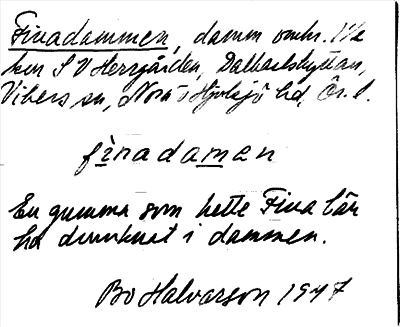 Finadammen, damm omkr. 1 1/2
km S V Herrgården, Dalkarlshyttan,
Vikers sn, Nora o Hjulsjö hd, Ör. l.
finadamen
En gumma som hette Fina lär
ha drunknat i dammen.
Bo Halvarson 1947